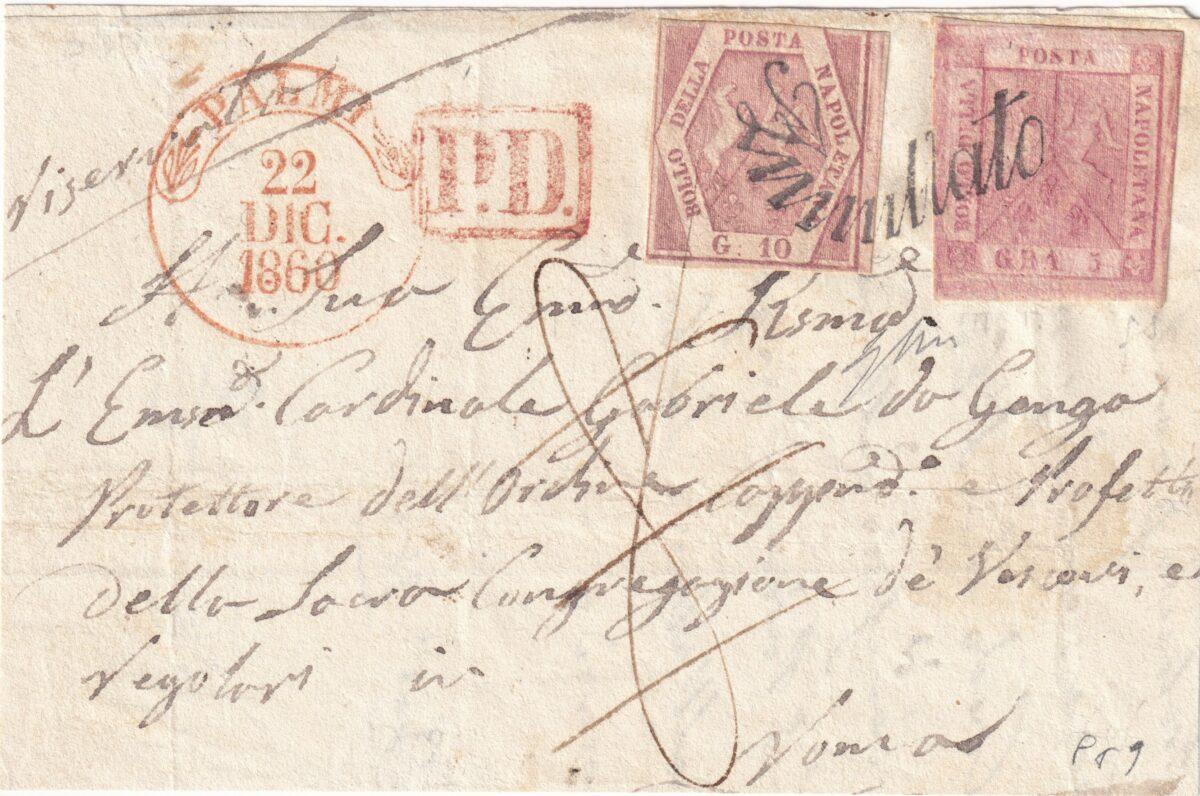 Riservata
PALMI
22
DIC.
1860
P.D.
BOLLO DELLA POSTA NAPOLETANA
G. 10
BOLLO DELLA POSTA NAPOLETANA
GRA 5
Annullato
A Sua Emza. Rsma
L' Emza. Cardinale Gabriele da Genga
Protettore dell' Ordine Cappno. e Prefetto
della Sacra Congregazione de' Vescovi, e
Regolari in
Roma
P § 9